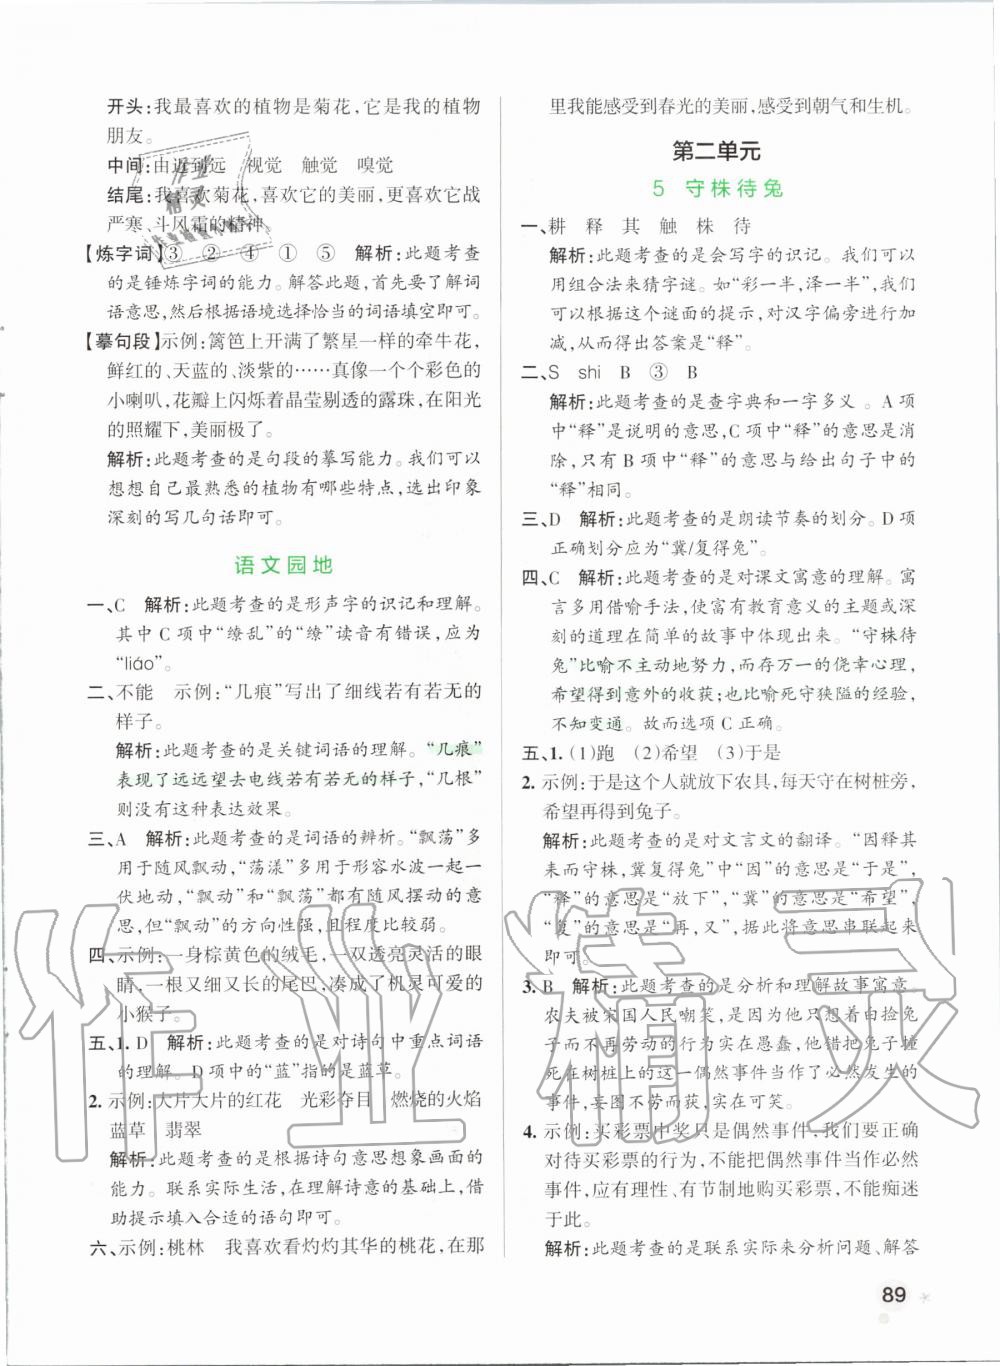 开头:我最喜欢的植物是菊花,它是我的植物
朋友。
中间:由近到远　视觉　触觉　嗅觉
结尾:我喜欢菊花,喜欢它的美丽,更喜欢它战
严寒、斗风霜的精神。
【炼字词】③　②　④　①　⑤　解析:此题考查
的是锤炼字词的能力。解答此题,首先要了解词
语意思,然后根据语境选择恰当的词语填空即可。
【摹句段】示例:篱笆上开满了繁星一样的牵牛花,
鲜红的、天蓝的、淡紫的……真像一个个彩色的
小喇叭,花瓣上闪烁着晶莹剔透的露珠,在阳光
的照耀下,美丽极了。
解析:此题考查的是句段的摹写能力。我们可以
想想自己最熟悉的植物有哪些特点,选出印象
深刻的写几句话即可。
语文园地
一、C　解析:此题考查的是形声字的识记和理解。
其中 C 项中“缭乱”的“缭”读音有错误,应为
“liáo”。
二、不能　示例:“几痕”写出了细线若有若无的
样子。
解析:此题考查的是关键词语的理解。“几痕”
表现了远远望去电线若有若无的样子,“几根”
则没有这种表达效果。
三、A　解析:此题考查的是词语的辨析。“飘荡”多
用于随风飘动,“荡漾”多用于形容水波一起一
伏地动,“飘动”和“飘荡”都有随风摆动的意
思,但“飘动”的方向性强,且程度比较弱。
四、示例:一身棕黄色的绒毛,一双透亮灵活的眼
睛,一根又细又长的尾巴,凑成了机灵可爱的
小猴子。
五、1. D　解析:此题考查的是对诗句中重点词语
的理解。D 项中的“蓝”指的是蓝草。
2. 示例:大片大片的红花　光彩夺目　燃烧的火焰
蓝草　翡翠
解析:此题考查的是根据诗句意思想象画面的
能力。联系实际生活,在理解诗意的基础上,借
助提示填入合适的语句即可。
六、示例:桃林　我喜欢看灼灼其华的桃花,在那
里我能感受到春光的美丽,感受到朝气和生机。
第二单元
5　守株待兔
一、耕　释　其　触　株　待
解析:此题考查的是会写字的识记。我们可以
用组合法来猜字谜。如“彩一半,泽一半”,我们
可以根据这个谜面的提示,对汉字偏旁进行加
减,从而得出答案是“释”。
二、S　shi　B　③　B
解析:此题考查的是查字典和一字多义 。A 项
中“释”是说明的意思,C 项中“释”的意思是消
除,只有 B 项中“释”的意思与给出句子中的
“释”相同。
三、D　解析:此题考查的是朗读节奏的划分。D 项
正确划分应为“冀/复得兔”。
四、C　解析:此题考查的是对课文寓意的理解。寓
言多用借喻手法,使富有教育意义的主题或深
刻的道理在简单的故事中体现出来。“守株待
兔”比喻不主动地努力,而存万一的侥幸心理,
希望得到意外的收获;也比喻死守狭隘的经验,
不知变通。故而选项 C 正确。
五、1. (1)跑　(2)希望　(3)于是
2. 示例:于是这个人就放下农具,每天守在树桩旁,
希望再得到兔子。
解析:此题考查的是对文言文的翻译。“因释其
耒而守株,冀复得兔”中“因”的意思是“于是”,
“释”的意思是“放下”,“冀”的意思是“希望”,
“复”的意思是“再,又”,据此将意思串联起来
即可。
3. B　解析:此题考查的是分析和理解故事寓意。
农夫被宋国人民嘲笑,是因为他因为自由捡兔
子而不再劳动的行为实在愚蠢,他把兔子撞
死在树桩上的偶然事件当作了必然发生的
事件,妄图不劳而获,实在可笑。
4. 示例:买彩票中奖只是偶然事件,我们要正确
对待买彩票的行为,不能把偶然事件当作必然
事件,应有理性、有节制地购买彩票,不能痴迷
于此。
解析:此题考查的是联系实际来分析问题、解答
89
作业精灵